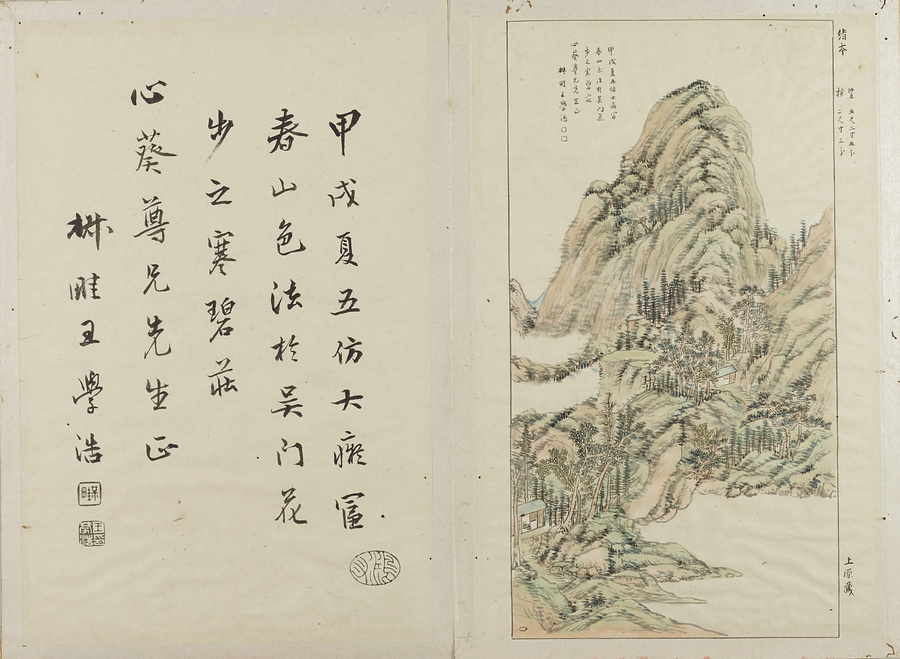 絹本
竪 五尺二寸五分
横 二尺寸三分
上原藏
甲戌夏五仿大癡富
春山色法於吳門花
步之寒碧莊
心葵尊兄先生正
椒畦王學浩□□
甲戌夏五仿大癡富
春山色法於吳門花
步之寒碧莊
心葵尊兄先生正
椒畦王學浩